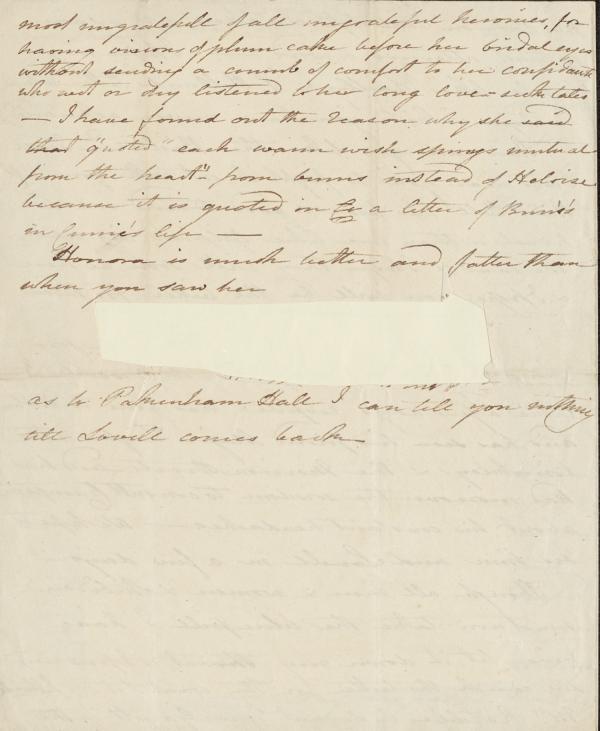 most ungrateful of all ungrateful heroines, for
having visions of plum cake before her bridal eyes
without sending a crumb of comfort to her confidante
who wet or dry listened to her long love-sick tales
— I have found out the reason why she said
that "quoted" each warm wish springs mutual
from the heart" — from Burns instead of Heloise
because it is quoted in a letter of Burns's
in Currie's life —
Honora is much better and fatter than
when you saw her
as to Pakenham Hall I can tell you nothing
till Lovell comes back —